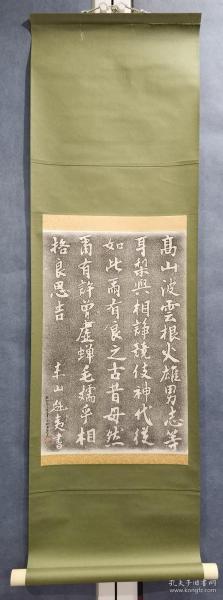 髙山波雲根火雄男志等
耳梨與相諍競伎神代従
如此爾有良之古昔母然
爾有許曾虚蝉毛嬬乎相
格良思吉
孔夫子旧书网